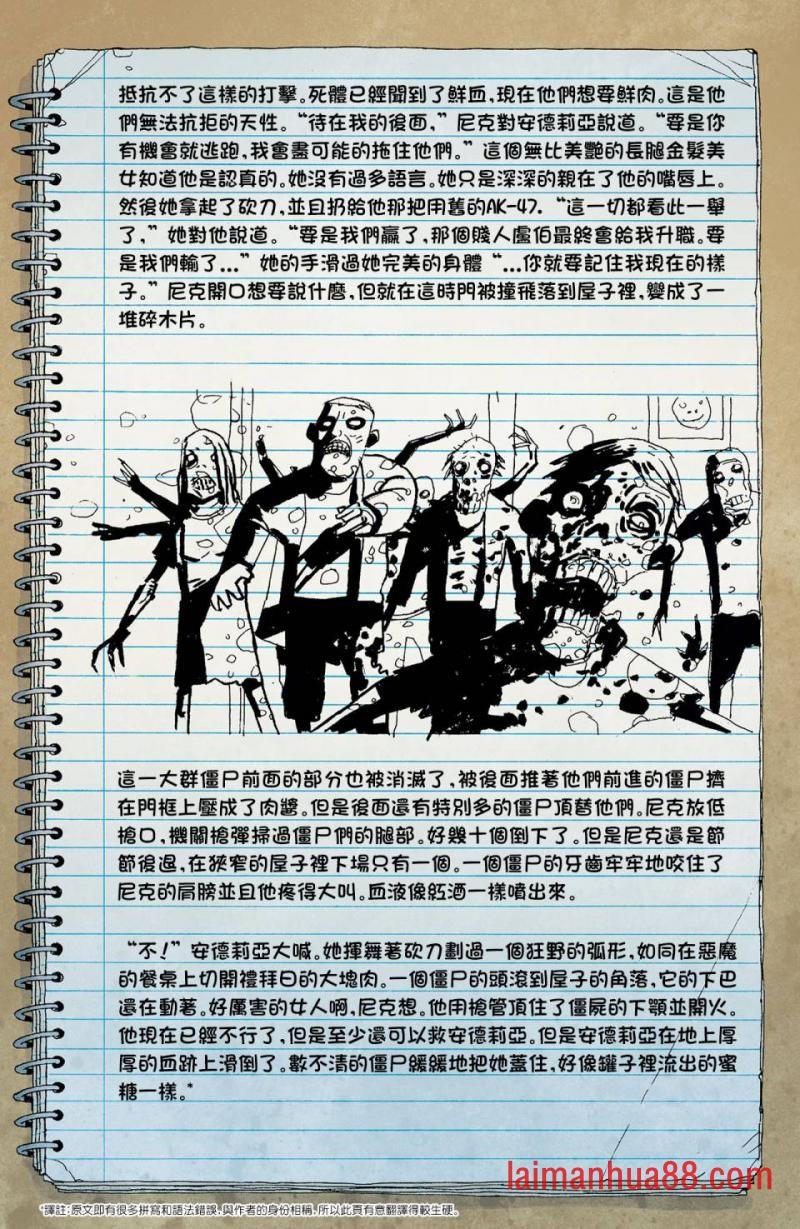 抵抗不了這樣的打擊。死體已經聞到了鮮血，現在他們想要鮮肉。這是他
們無法抗拒的天性。“待在我的後面，”尼克對安德莉亞說道。“要是你
有機會就逃跑，我會盡可能的拖住他們。”這個無比美艷的長腿金髮美
女知道他是認真的。她沒有過多語言。她只是深深的親在了他的嘴唇上。
然後她拿起了砍刀，並且扔給他那把用舊的AK-47. “這一切都看此一舉
了，”她對他說道。“要是我們贏了，那個賤人盧伯最終會給我升職。要
是我們輸了...”她的手滑過她完美的身體“...你就要記住我現在的樣
子。”尼克開口想要說什麼，但就在這時門被撞飛落到屋子裡，變成了一
堆碎木片。
這一大群僵尸前面的部分也被消滅了，被後面推著他們前進的僵尸擠
在門框上壓成了肉醬。但是後面還有特別多的僵尸頂替他們。尼克放低
槍口，機關槍彈掃過僵尸們的腿部。好幾十個倒下了。但是尼克還是節
節後退，在狹窄的屋子裡下場只有一個。一個僵尸的牙齒牢牢地咬住了
尼克的肩膀並且他疼得大叫。血液像紅酒一樣噴出來。
“不！”安德莉亞大喊。她揮舞著砍刀劃過一個狂野的弧形，如同在惡魔
的餐桌上切開禮拜日的大塊肉。一個僵尸的頭滾到屋子的角落，它的下巴
還在動著。好厲害的女人啊，尼克想。他用槍管頂住了僵屍的下顎並開火。
他現在已經不行了，但是至少還可以救安德莉亞。但是安德莉亞在地上厚
厚的血跡上滑倒了。數不清的僵尸緩緩地把她蓋住，好像罐子裡流出的蜜
糖一樣。*
laimanhua88.com
*譯註：原文即有很多拼寫和語法錯誤，與作者的身份相稱，所以此頁有意翻譯得較生硬。